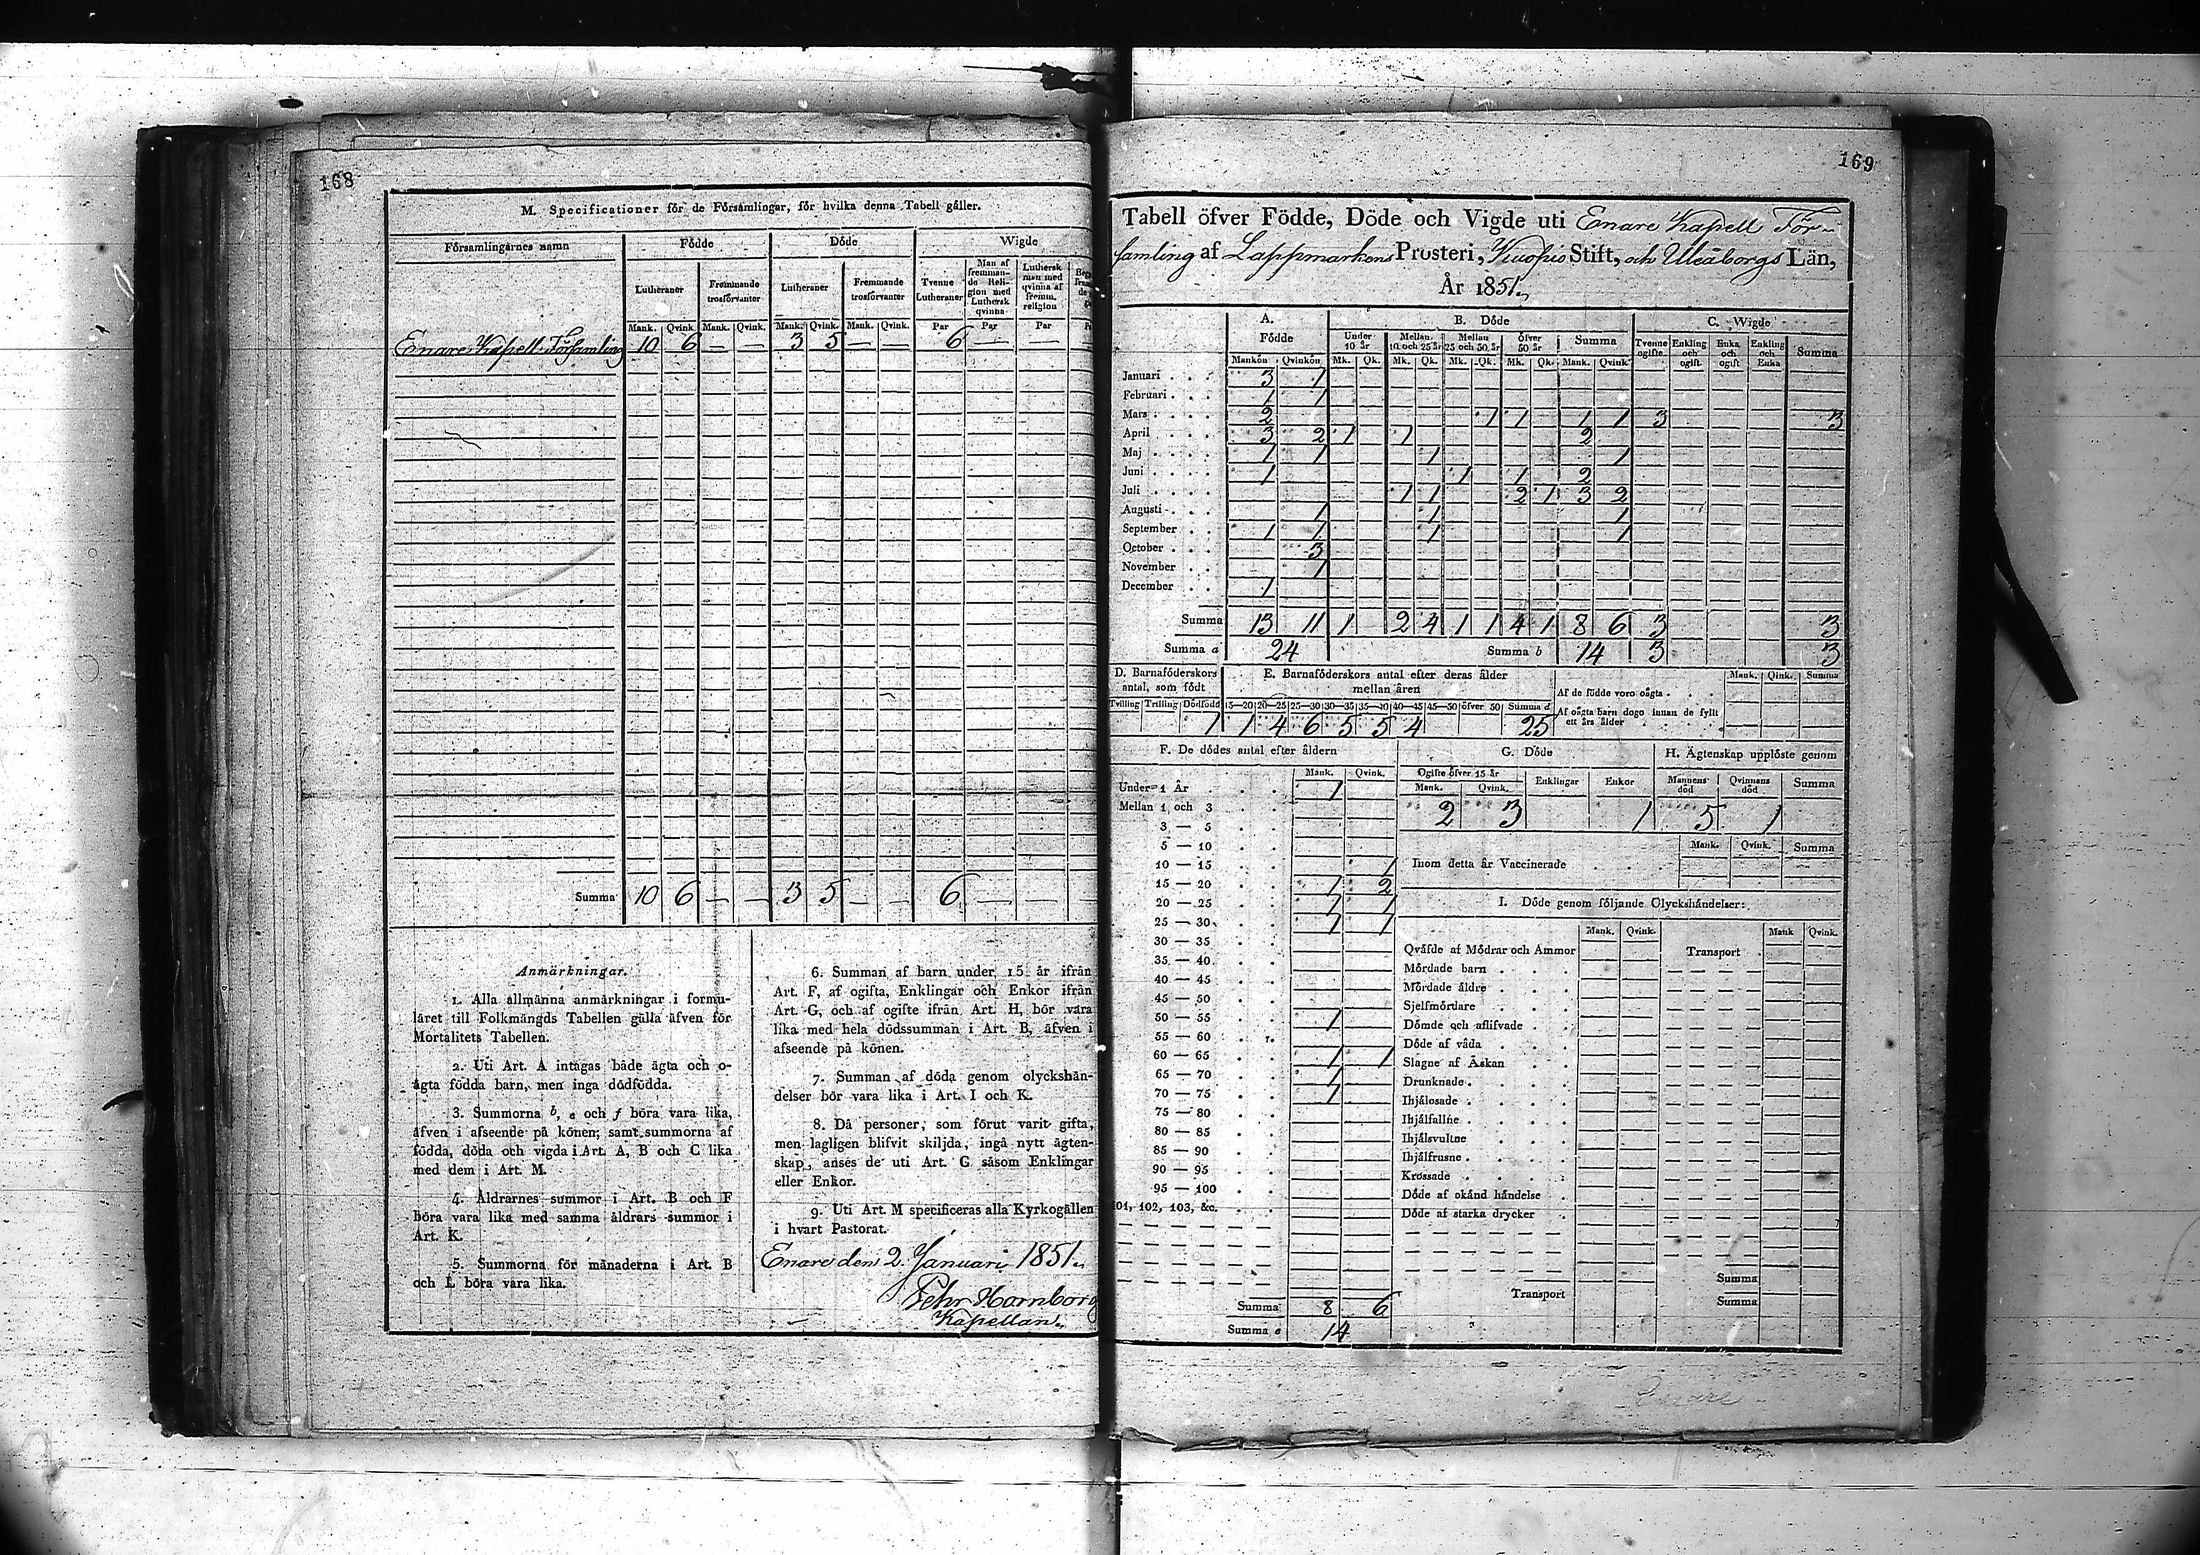 168
M. Specificationer för de Församlingar, för hvilka denna Tabell gäller.
Församlingarnes namn Födde Döde Wigde
Lutheraner Fremmande trosförvanter Lutheraner Fremmande trosförvanter Tvenne Lutheraner Man af fremmande Religion med Luthersk qvinna Luthersk man med qvinna af fremm. religion
Mank. Qvink. Mank. Qvink. Mank. Qvink. Mank. Qvink. Par Par Par
Enare Kapell Församling 10 6 — — 3 5 — — 6 — —
Summa 10 6 — — 3 5 — — 6 — — —
Anmärkningar.
1. Alla allmänna anmärkningar i formu-
läret till Folkmängds Tabellen gälla äfven för
Mortalitets Tabellen.
2. Uti Art. A intagas både ägta och o-
ägta födda barn, men inga dödfödda.
3. Summorna b, e och f böra vara lika,
äfven i afseende på könen; samt summorna af
födda, döda och vigda i Art. A, B och C lika
med dem i Art. M.
4. Åldrarnes summor i Art. B och F
böra vara lika med samma åldrars summor i
Art. K.
5. Summorna för månaderna i Art. B
och L böra vara lika.
6. Summan af barn under 15 år ifrån
Art. F, af ogifta, Enklingar och Enkor ifrån
Art. G, och af ogifte ifrån Art. H, bör vara
lika med hela dödssumman i Art. B, äfven i
afseende på könen.
7. Summan af döda genom olyckshän-
delser bör vara lika i Art. I och K.
8. Då personer, som förut varit gifta,
men lagligen blifvit skiljda, ingå nytt ägten-
skap, anses de uti Art. G såsom Enklingar
eller Enkor.
9. Uti Art. M specificeras alla Kyrkogällen
i hvart Pastorat.
Enare den 2. Januari 1851.
Pehr Hornborg
Kapellan.
169
Tabell öfver Födde, Döde och Vigde uti Enare Kapell För-
samling af Lappmarkens Prosteri, Kuopio Stift, och Uleåborgs Län,
År 1851.
A. Födde B. Döde C. Wigde
Under 10 år Mellan 10 och 25 år Mellan 25 och 50 år öfver 50 år Summa Tvenne ogifte Enkling och ogift Enka och ogift Enkling och Enka Summa
Mankön Qvinkön Mk. Qk. Mk. Qk. Mk. Qk. Mk. Qk. Mank. Qvink
Januari 3 1
Februari 1 1
Mars 2 1 1 1 1 3 3
April 3 2 1 1 2
Maj 1 1 1 1
Juni 1 1 1 2
Juli 1 1 2 1 3 2
Augusti 1 1 1
September 1 1 1 1
October 3
November 1
December 1
Summa 13 11 1 2 4 1 1 4 1 8 6 3 3
Summa a 24 Summa b 14 3 3
D. Barnaföderskors antal, som födt
Tvilling Trilling Dödfödd
1
E. Barnaföderskors antal efter deras ålder
mellan åren
15—20 20—25 25—30 30—35 35—40 40—45 45—50 öfver 50 Summa d
1 4 6 5 5 4 25
Mank. Qink. Summa
Af de födde voro oägta
Af oägta barn dogo innan de fyllt
ett års ålder
F. De dödes antal efter åldern
Mank. Qvink.
Under 1 År 1
Mellan 1 och 3
3 — 5
5 — 10
10 — 15 1
15 — 20 1 2
20 — 25 1 1
25 — 30 1 1
30 — 35
35 — 40
40 — 45
45 — 50
50 — 55 1
55 — 60
60 — 65 1 1
65 — 70 1
70 — 75 1
75 — 80
80 — 85
85 — 90
90 — 95
95 — 100
101, 102, 103, &c.
Summa 8 6
Summa e 14
G. Döde
Ogifte öfver 15 år Enklingar Enkor
Mank. Qvink.
2 3 1
H. Ägtenskap upplöste genom
Mannens död Qvinnans död Summa
5 1
Mank. Qvink. Summa
Inom detta år Vaccinerade
I. Döde genom följande Olyckshändelser:
Mank. Qvink. Mank Qvink.
Qväfde af Mödrar och Ammor Transport
Mördade barn
Mördade äldre
Sjelfmördare
Dömde och aflifvade
Döde af våda
Slagne af Åskan
Drunknade
Ihjälosade
Ihjälfallne
Ihjälsvultne
Ihjälfrusne
Krossade
Döde af okänd händelse
Döde af starka drycker
Summa
Transport Summa
Enare